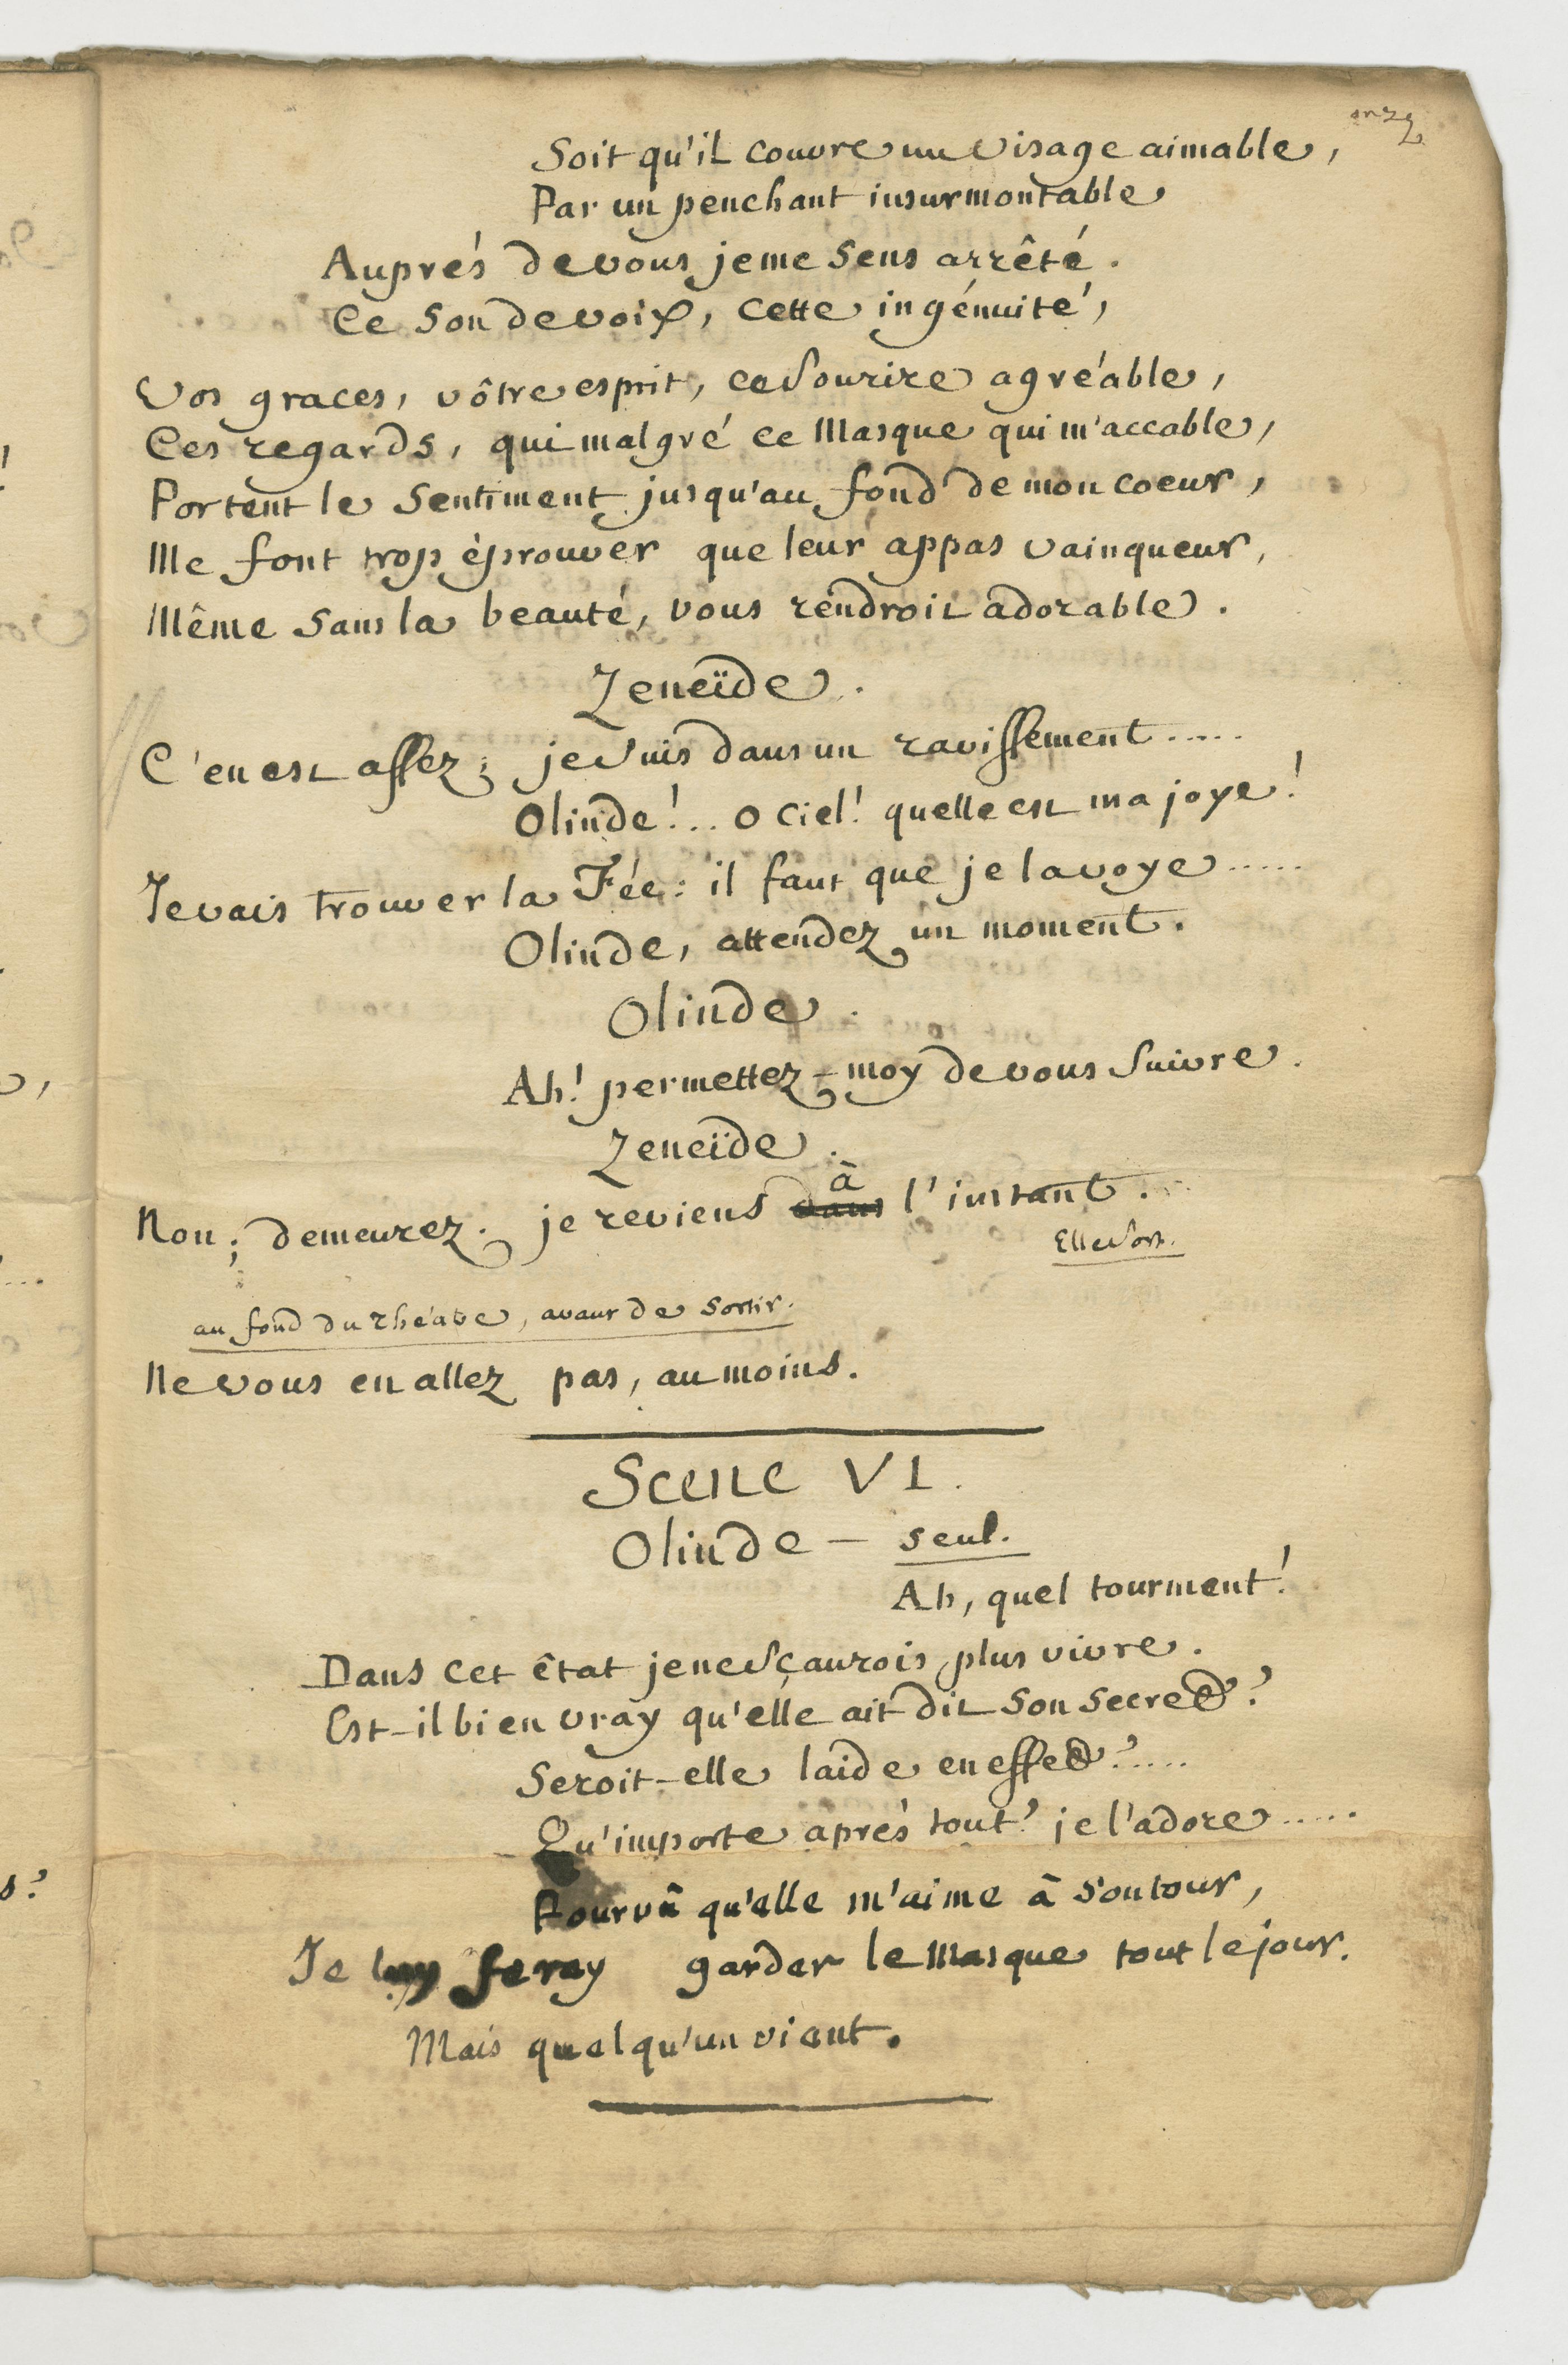 onze
Soit qu'il couvre un visage aimable,
Par un penchant insurmontable
Auprés de vous je me sens arrêté.
Ce son de voix, cette ingénuité,
Vos graces, vôtre esprit, ce sourire agréable,
Ces regards, qui malgré ce Masque qui m'accable,
Portent le sentiment jusqu'au fond de mon coeur,
Me font trop éprouver que leur appas vainqueur,
Même sans la beauté, vous rendroit adorable.
Zeneïde.
C'en est assez; je suis dans un ravissement.....
Olinde!.. o Ciel! quelle est ma joye!
Je vais trouver la Fée: il faut que je la voye.....
Olinde, attendez un moment.
Olinde.
Ah! permettez-moy de vous suivre.
Zeneïde.
Non; demeurez. je reviens dans à l'instant.
Elle sort.
au fond du théatre, avant de sortir.
Ne vous en allez pas, au moins.
Scene VI.
Olinde - seul.
Ah, quel tourment!
Dans cet êtat je ne sçaurois plus vivre.
Est-il bien vray qu'elle ait dit son secret?
Seroit-elle laide en effet?.....
Qu'importe aprés tout? je l'adore.....
Pourvû qu'elle m'aime à son tour,
Je luy feray garder le Masque tout le jour.
Mais quelqu'un vient.